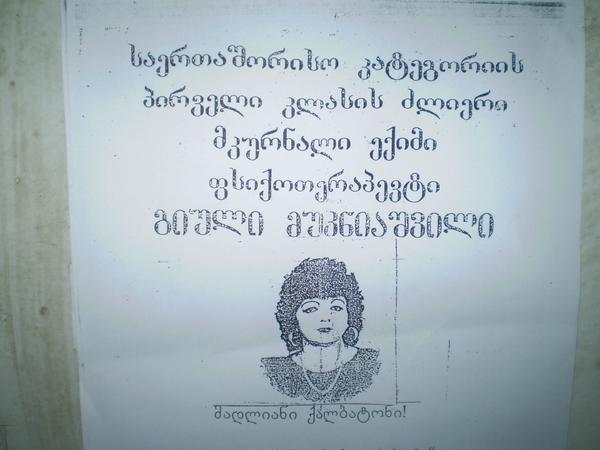 საერთაშორისო კატეგორიის
პირველი კლასის ძლიერი
მკურნალი ექიმი
ფსიქოთერაპევტი
გიული მუკნიაშვილი
მადლიანი ქალბატონი!